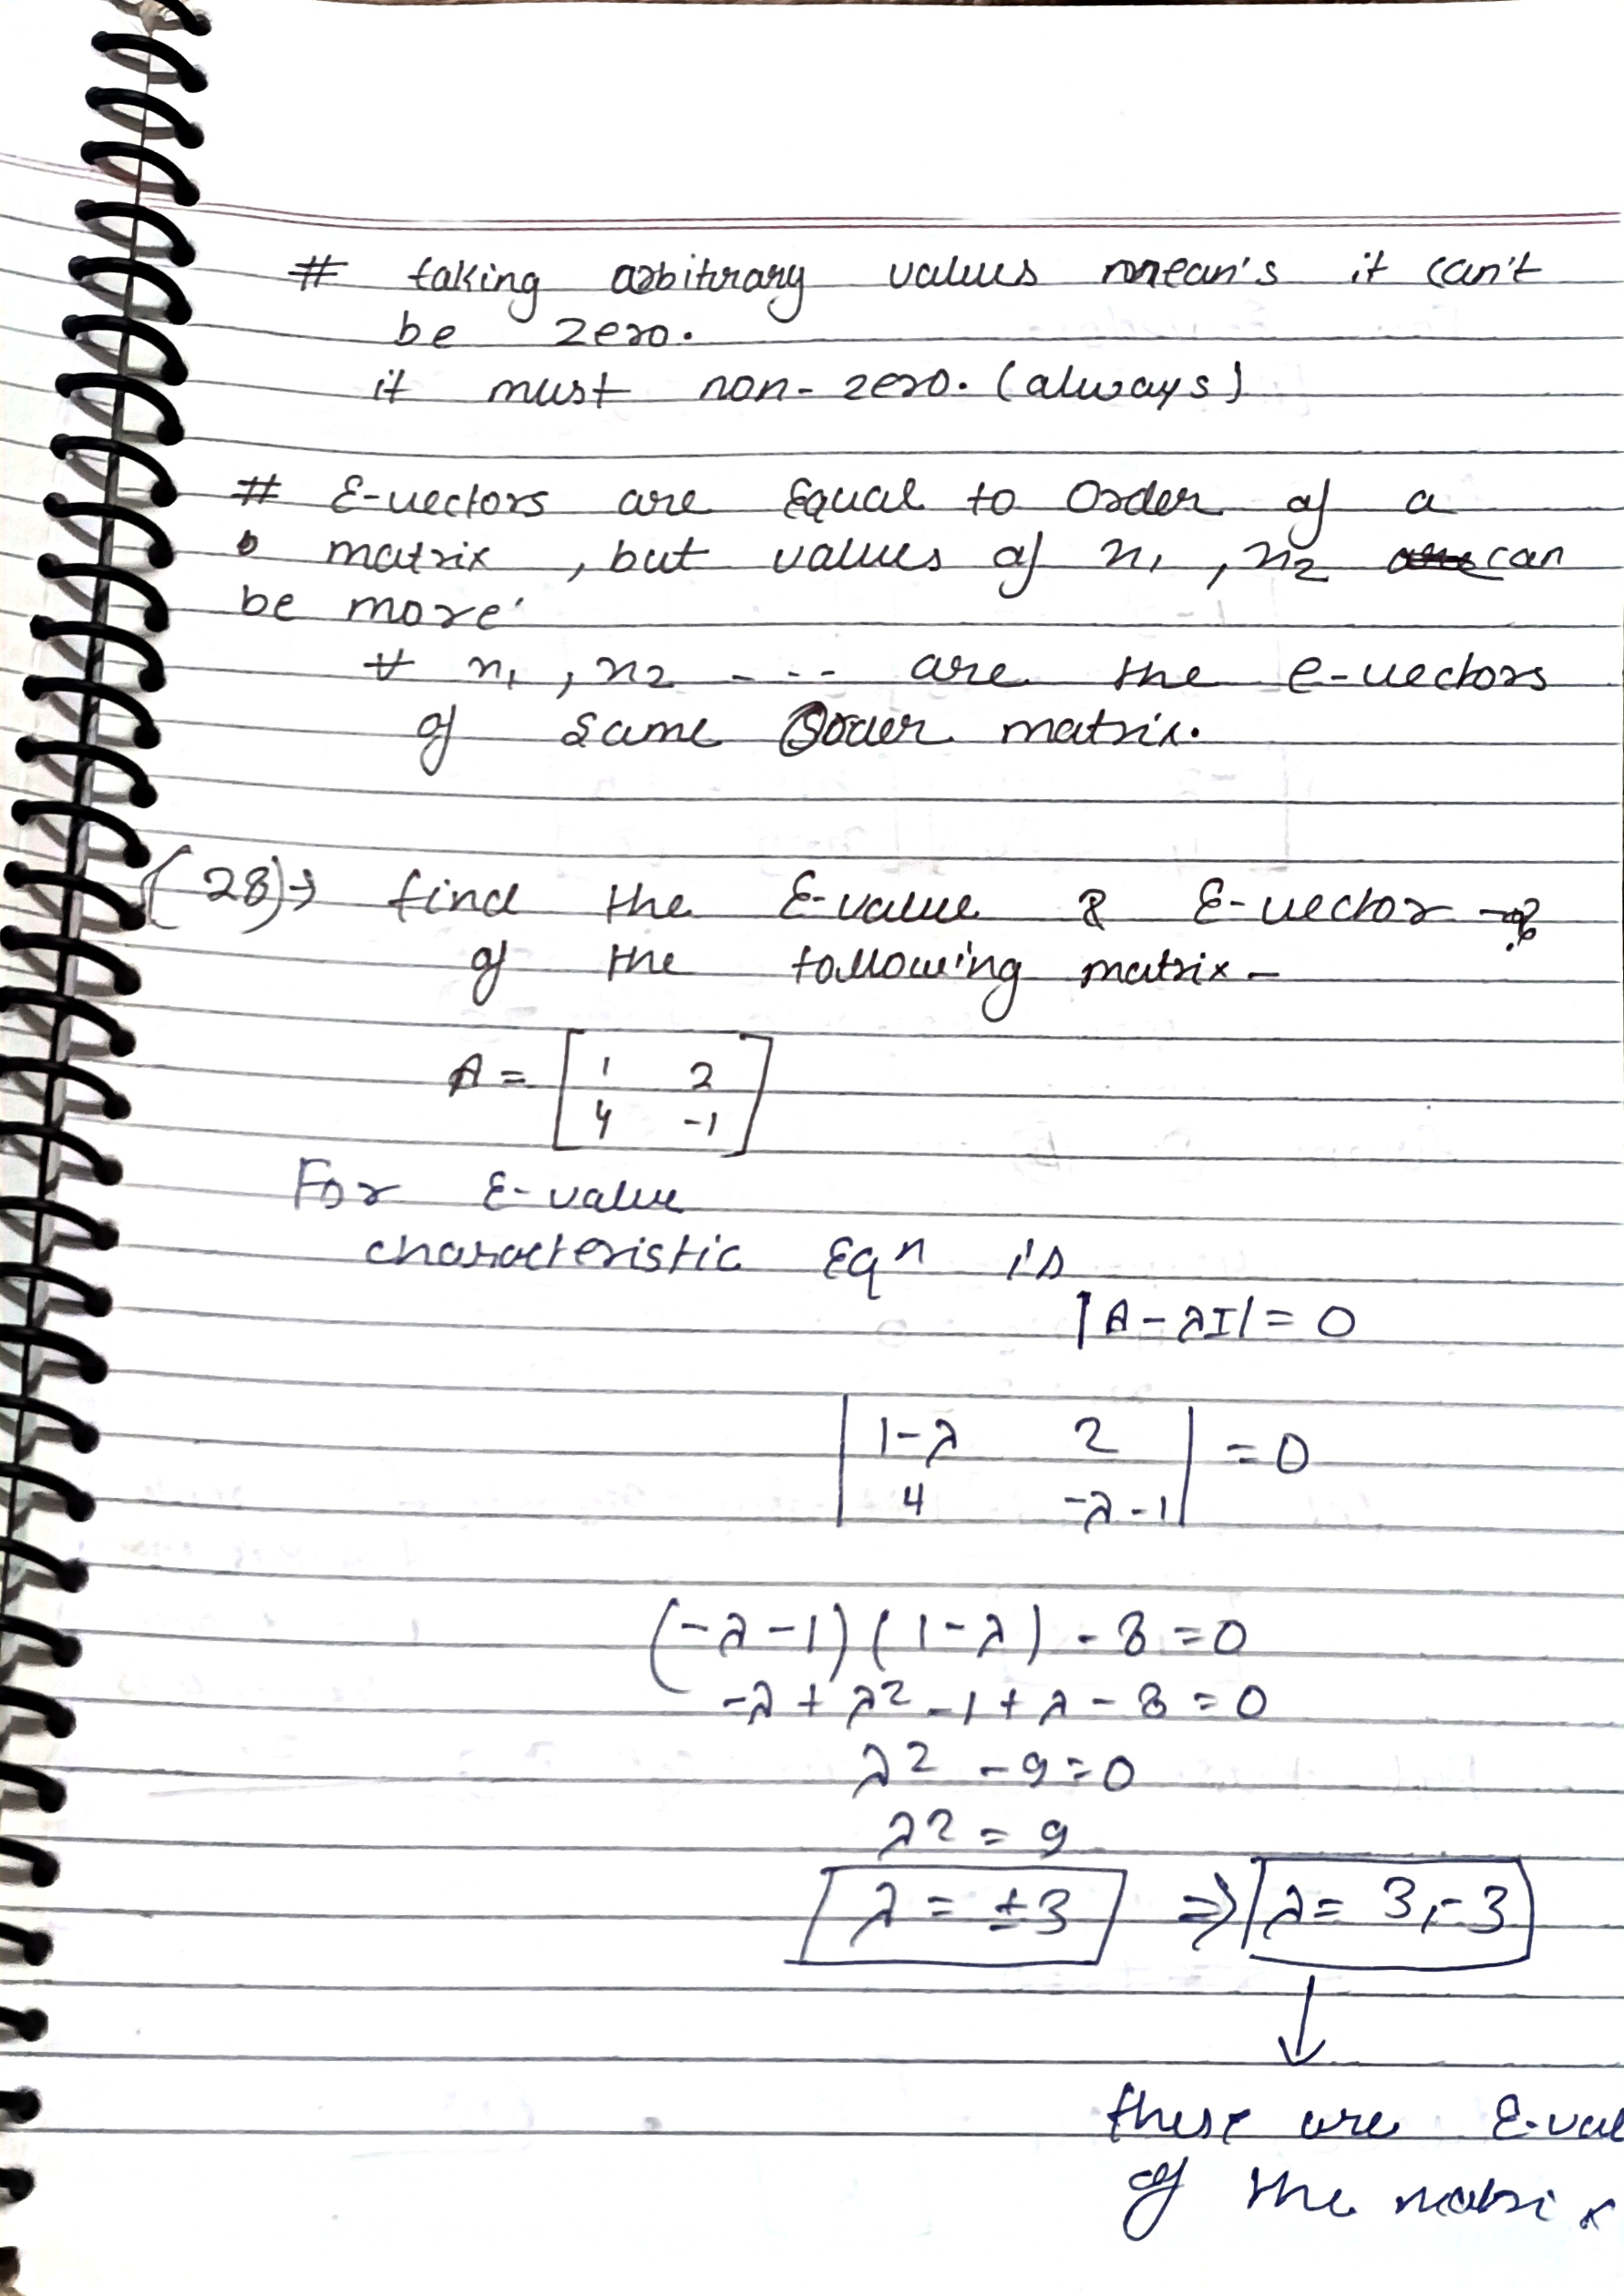 # taking arbitrary values mean's it can't
be zero.
it must non-zero. (always)
# E-vectors are Equal to Order of a
matrix, but values of x₁, x₂ can
be more
∀ x₁, x₂ - - - are the e-vectors
of same Order matrix.
(28)→ find the E-value & E-vector
of the following matrix -
A = [1 2
4 -1]
For E-value
characteristic Eqⁿ is
|A - λI| = 0
|1-λ 2
4 -λ-1| = 0
(-λ-1)(1-λ) - 8 = 0
-λ + λ² - 1 + λ - 8 = 0
λ² - 9 = 0
λ² = 9
λ = ±3 ⇒ λ = 3, -3
↓
these are E-val
of the matrix